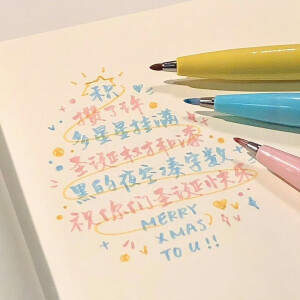 积
攒了许
多星星挂满
圣诞树才和漆
黑的夜空凑字数
祝你们圣诞快乐
MERRY
XMAS
TO U!!